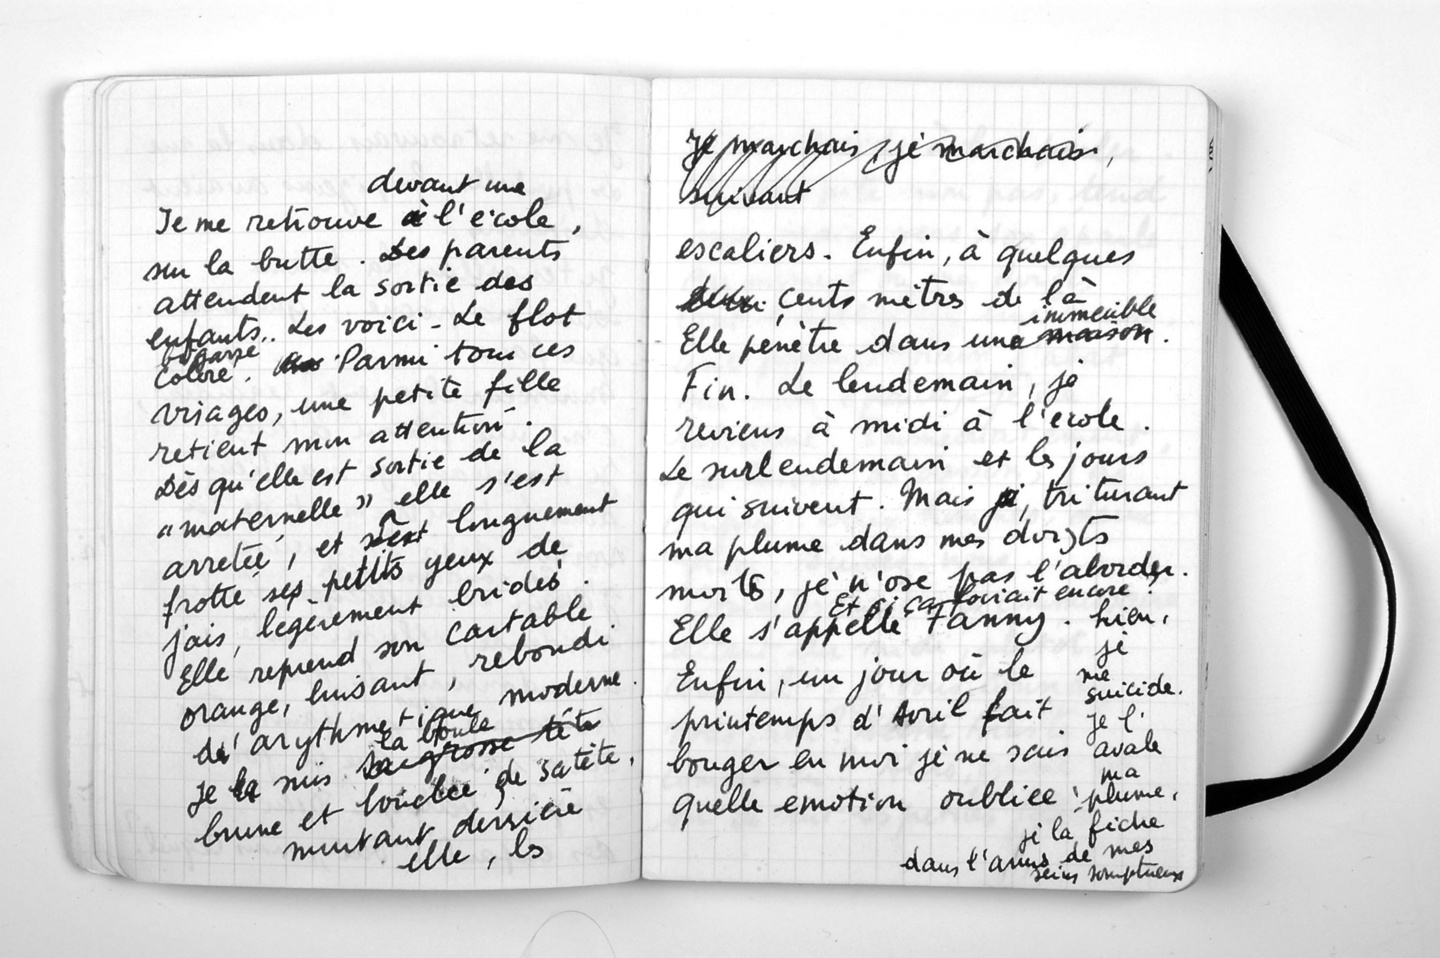 devant une
Je me retrouve à l'école,
sur la butte. Des parents
attendent la sortie des
enfants.. Les voici - Le flot
bigarré
coloré. Parmi tous ces
visages, une petite fille
retient mon attention.
Dès qu'elle est sortie de la
"maternelle" elle s'est
arretée, et s'est longuement
frotté ses petits yeux de
jais, légèrement bridés.
Elle reprend son cartable
orange, luisant, rebondi
d'arythmetique moderne.
la boule
Je la suis sa grosse tête
brune et bouclée de sa tête,
montant derrière
elle, les
Je marchais, je marchais,
suivant
escaliers. Enfin, à quelques
deux cents mètres de là
immeuble
Elle pénètre dans une maison.
Fin. Le lendemain, je
reviens à midi à l'école.
Le surlendemain et les jours
qui suivent. Mais je, triturant
ma plume dans mes doigts
morts, je n'ose pas l'aborder.
Et si ça foirait encore?
Elle s'appelle Fanny. hier,
je
Enfin, un jour où le me
suicide.
printemps d'Avril fait je l'
bouger en moi je ne sais avale
ma
quelle emotion oubliée: plume,
je la fiche
dans l'anus de mes
seins somptueux